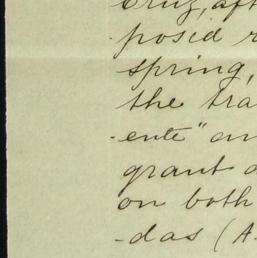 Cruz, aft
-posed r
spring,
the tra
-ente" an
grant a
on both
-das (A.